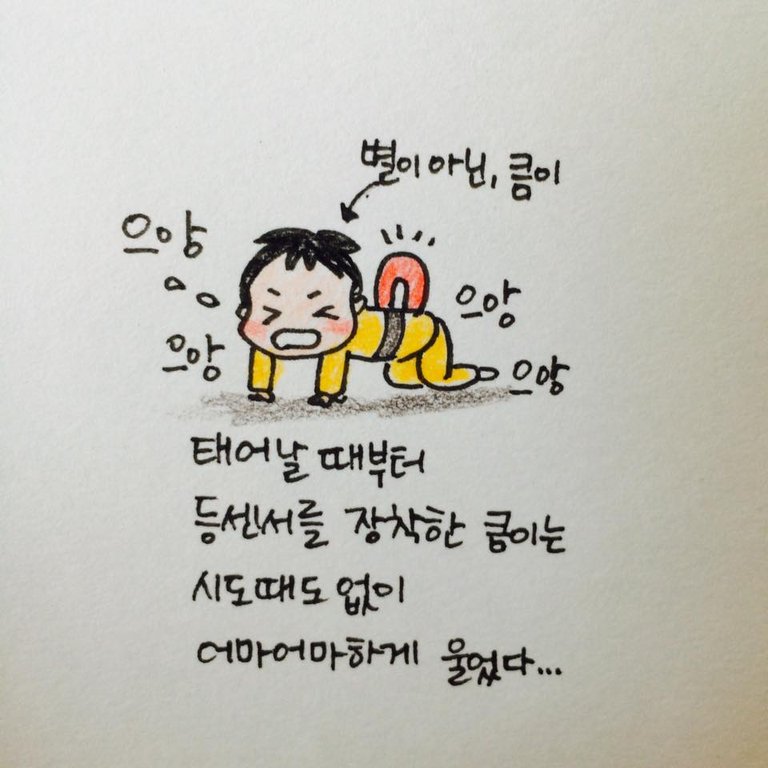 별이 아닌, 큼이
으앙
으앙
으앙
으앙
태어날 때부터
등센서를 장착한 큼이는
시도때도 없이
어마어마하게 울었다...